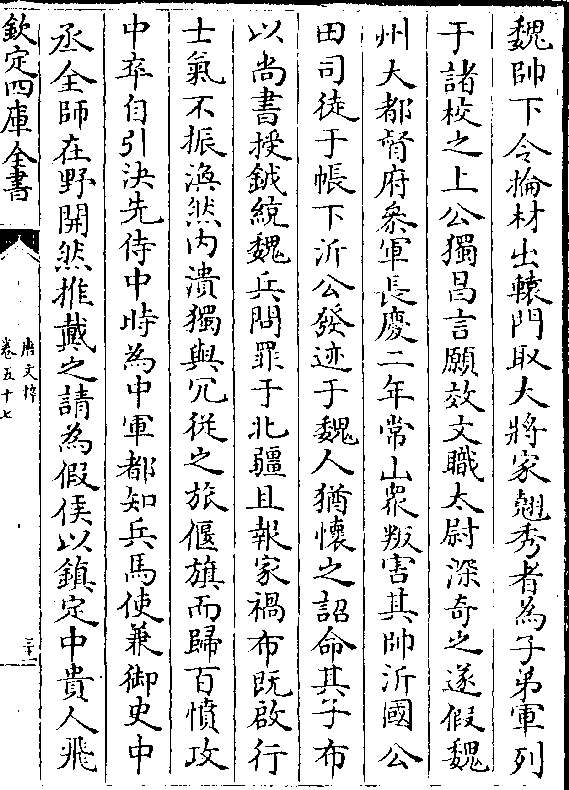 魏帥下令掄材出轅門取大將家翹秀者為子弟軍列
于諸校之上公獨昌言願效文職太尉深奇之遂假魏
州大都督府叅軍長慶二年常山衆叛害其帥沂國公
田司徒于帳下沂公發迹于魏人猶懷之詔命其子布
以尚書授鉞統魏兵問罪于北疆且報家禍布既啟行
士氣不振渙然内潰獨與冗從之旅偃旗而歸百憤攻
中卒自引決先侍中時為中軍都知兵馬使兼御史中
丞全師在野開然推戴之請為假侯以鎮定中貴人飛
欽定四庫全書
唐文粹
卷五十七
三十一